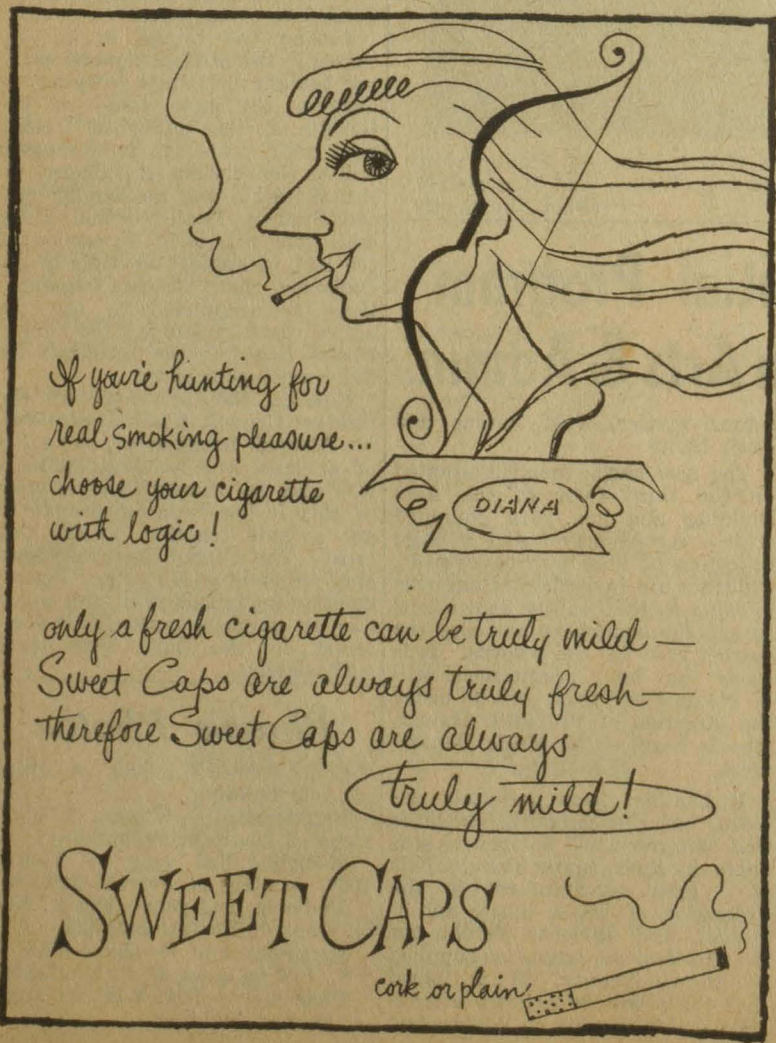 DIANA
If you're hunting for
real smoking pleasure...
choose your cigarette
with logic!
only a fresh cigarette can be truly mild —
Sweet Caps are always truly fresh —
therefore Sweet Caps are always
truly mild!
SWEET CAPS
cork or plain